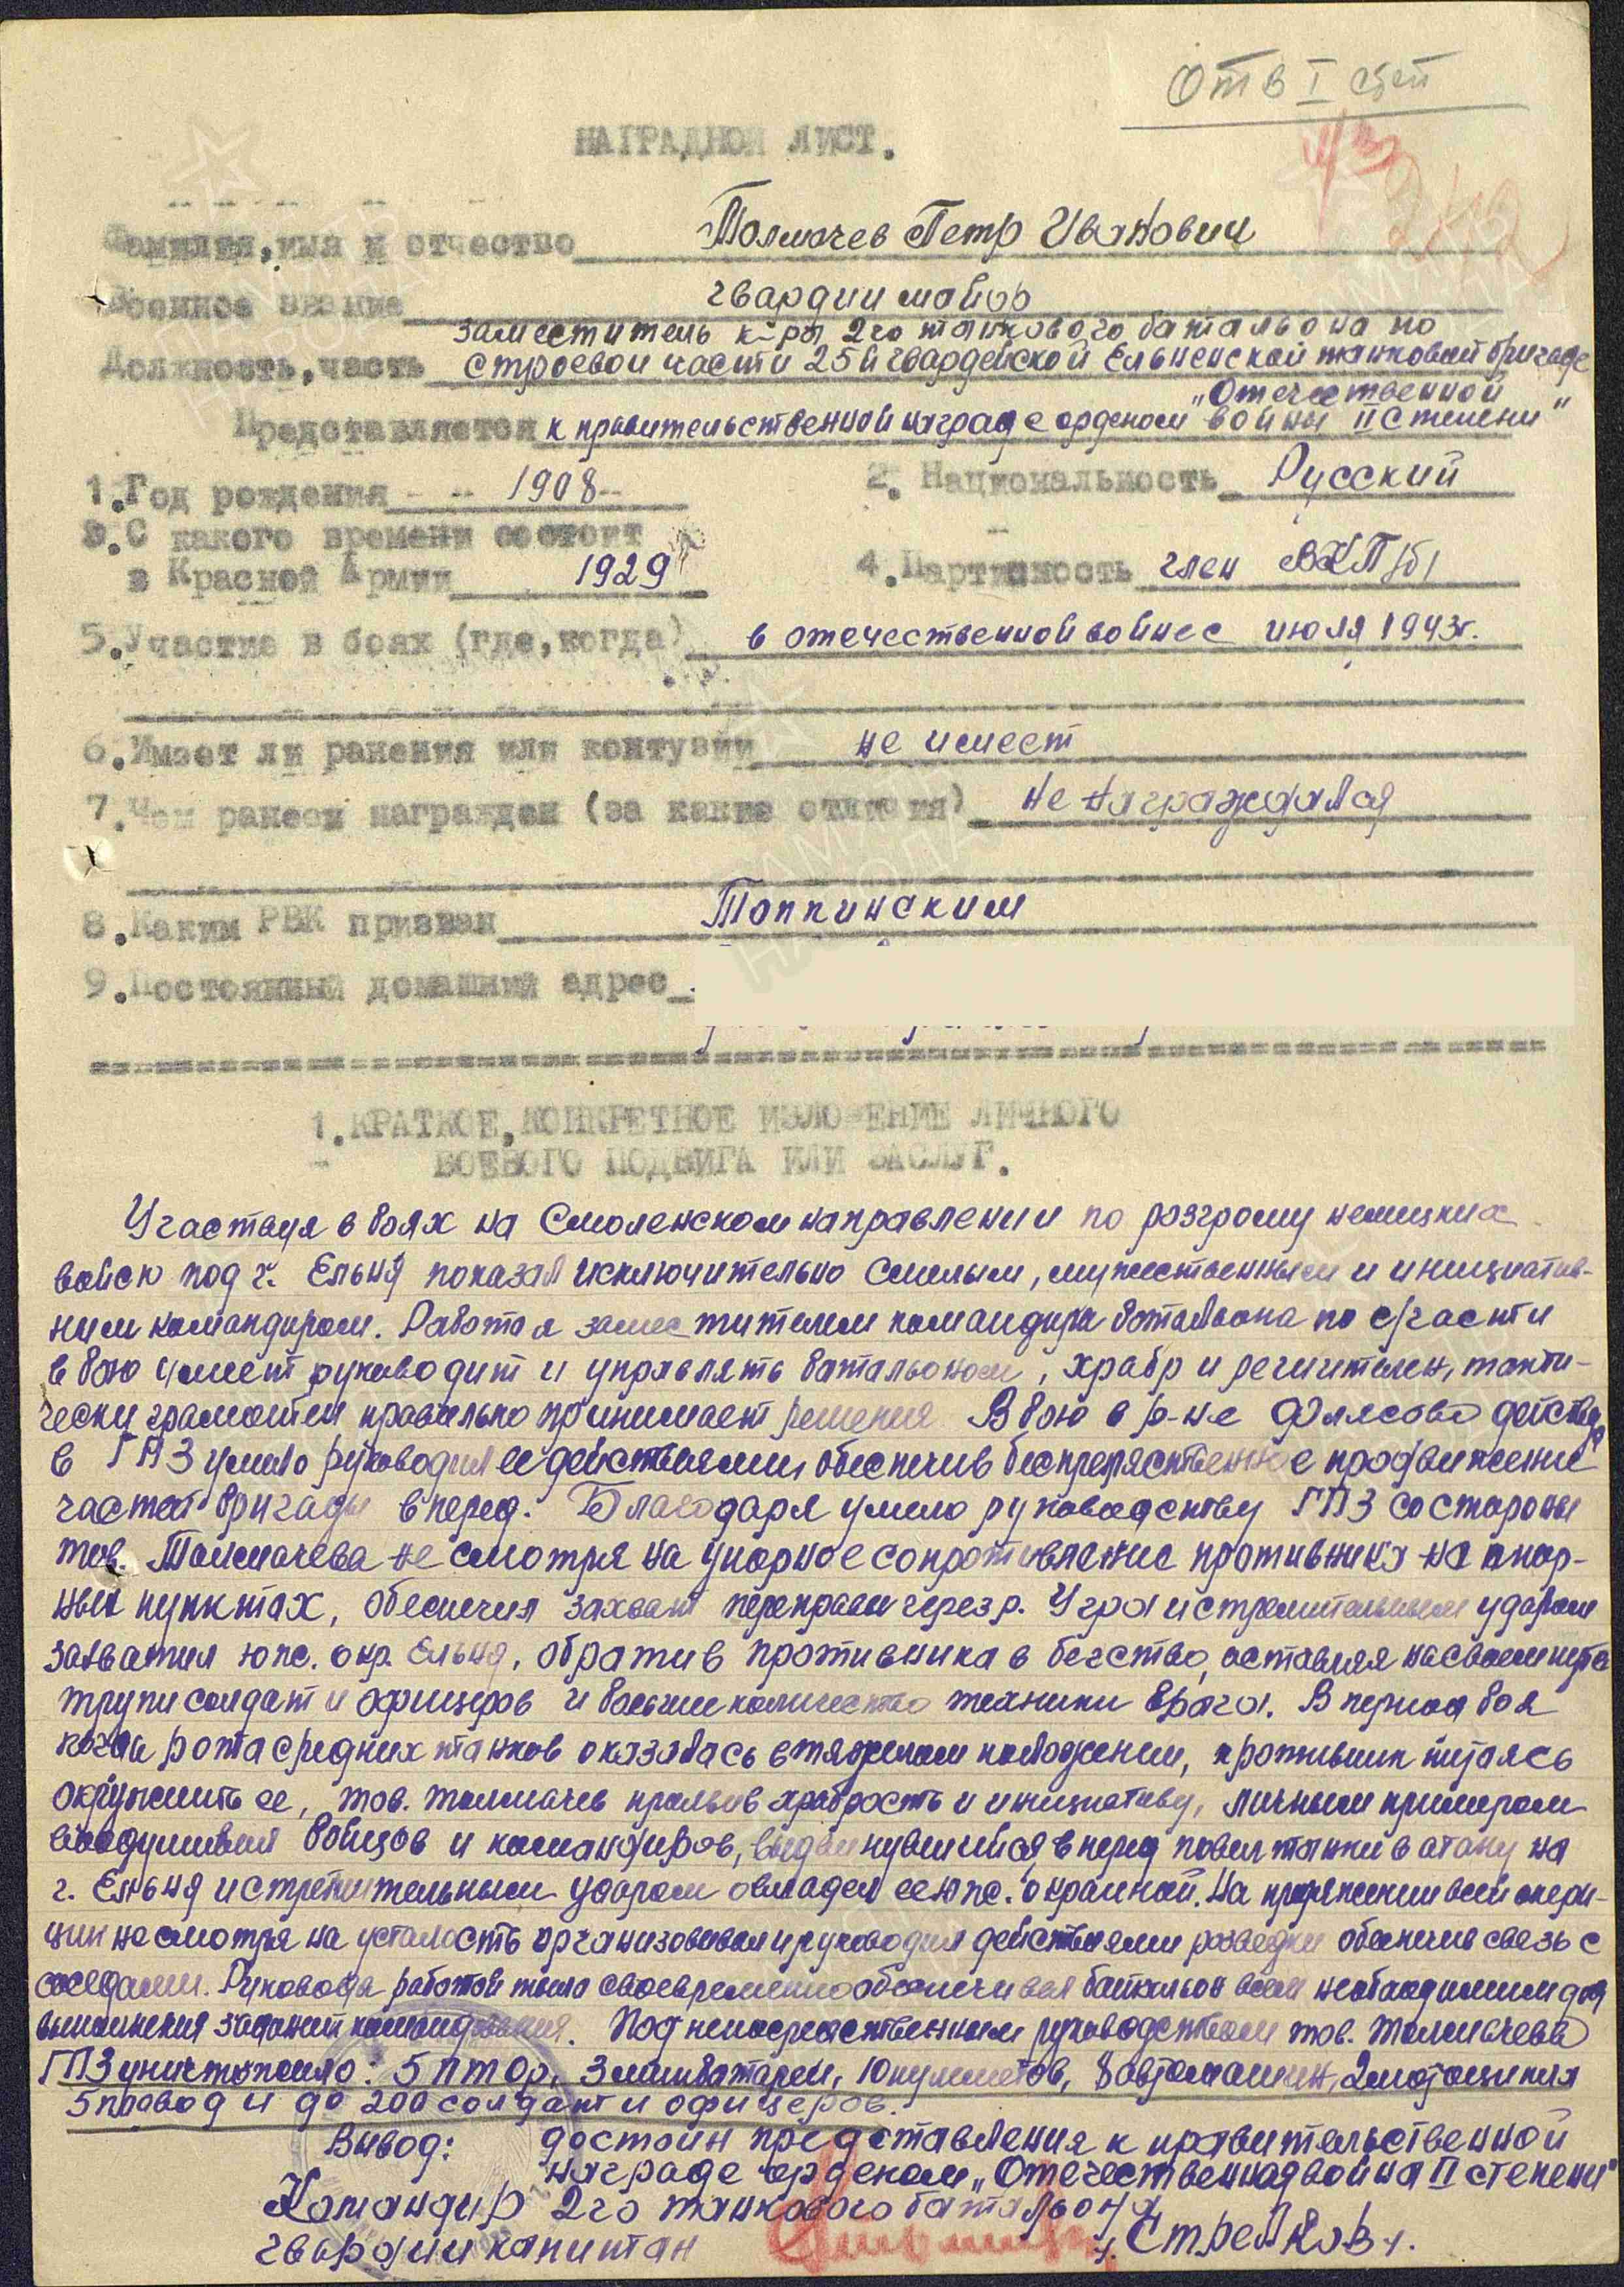 Отв I степ
НАГРАДНОЙ ЛИСТ.
Фамилия, имя и отчество Толмачев Петр Иванович
Военное звание гвардии майор
заместитель к-ра 2го танкового батальона по
Должность, часть строевой части 25й гвардейской Ельненской танковой бригаде
"Отечественной
Представляется к правительственной награде орденом войны II степени"
1. Год рождения 1908 2. Национальность Русский
3. С какого времени состоит
в Красной Армии 1929 4. Партийность член ВКП(б)
5. Участие в боях (где, когда) в отечественной войне с июля 1943г.
6. Имеет ли ранения или контузии не имеет
7. Чем ранее награжден (за какие отличия) не награждался
8. Каким РВК призван Топкинским
9. Постоянный домашний адрес
1. КРАТКОЕ, КОНКРЕТНОЕ ИЗЛОЖЕНИЕ ЛИЧНОГО
БОЕВОГО ПОДВИГА ИЛИ ЗАСЛУГ.
Участвуя в боях на Смоленском направлении по розгрому немецких
войск под г. Ельня показал исключительно смелым, мужественным и инициатив-
ним командиром. Работая заместителем командира батальона по с/части
в бою умеет руководит и управлять батальоном, храбр и решителен, такти-
чески грамотен правильно принимает решения. В бою в р-не действуя
в ГПЗ умело руководил ее действиями, обеспечив беспрепятственное продвижение
частей бригады вперед. Благодаря умело руководству ГПЗ со стороны
тов. Толмачева не смотря на упорное сопротивление противника на опор-
ных пунктах, обеспечил захват переправы через р. Угра и стремительным ударом
захватил юж. окр. Ельня, обратив противника в бегство, оставляя на своем пути
трупы солдат и офицеров и большие количество техники врага. В период боя
когда рота средних танков оказалась в тяжелом положении, противник питаясь
окружить ее, тов. Толмачев проявив храбрость и инициативу, личным примером
воодушевил бойцов и командиров, выдвинувшийся вперед повел танки в атаку на
г. Ельня и стремительным ударом овладел ее окраиной. На протяжении всей опера-
ции не смотря на усталость организовывал и руководил действиями розведки обеспечив связь с
соседями. Руководя работой тыла своевременно обеспечивал батальон всем необходимим для
выполнения заданий командования. Под непосредственным руководством тов. Толмачева
ГПЗ уничтожило: 5 птор, 3 минбатареи, 10 пулеметов, 8 автомашин, 2 мотоцикла
5 повод и до 200 солдат и офицеров.
Вывод: достоин представления к правительственной
награде орденом "Отечественная война II степени"
Командир 2го танкового батальона
гвардии капитан /Стрелков/.